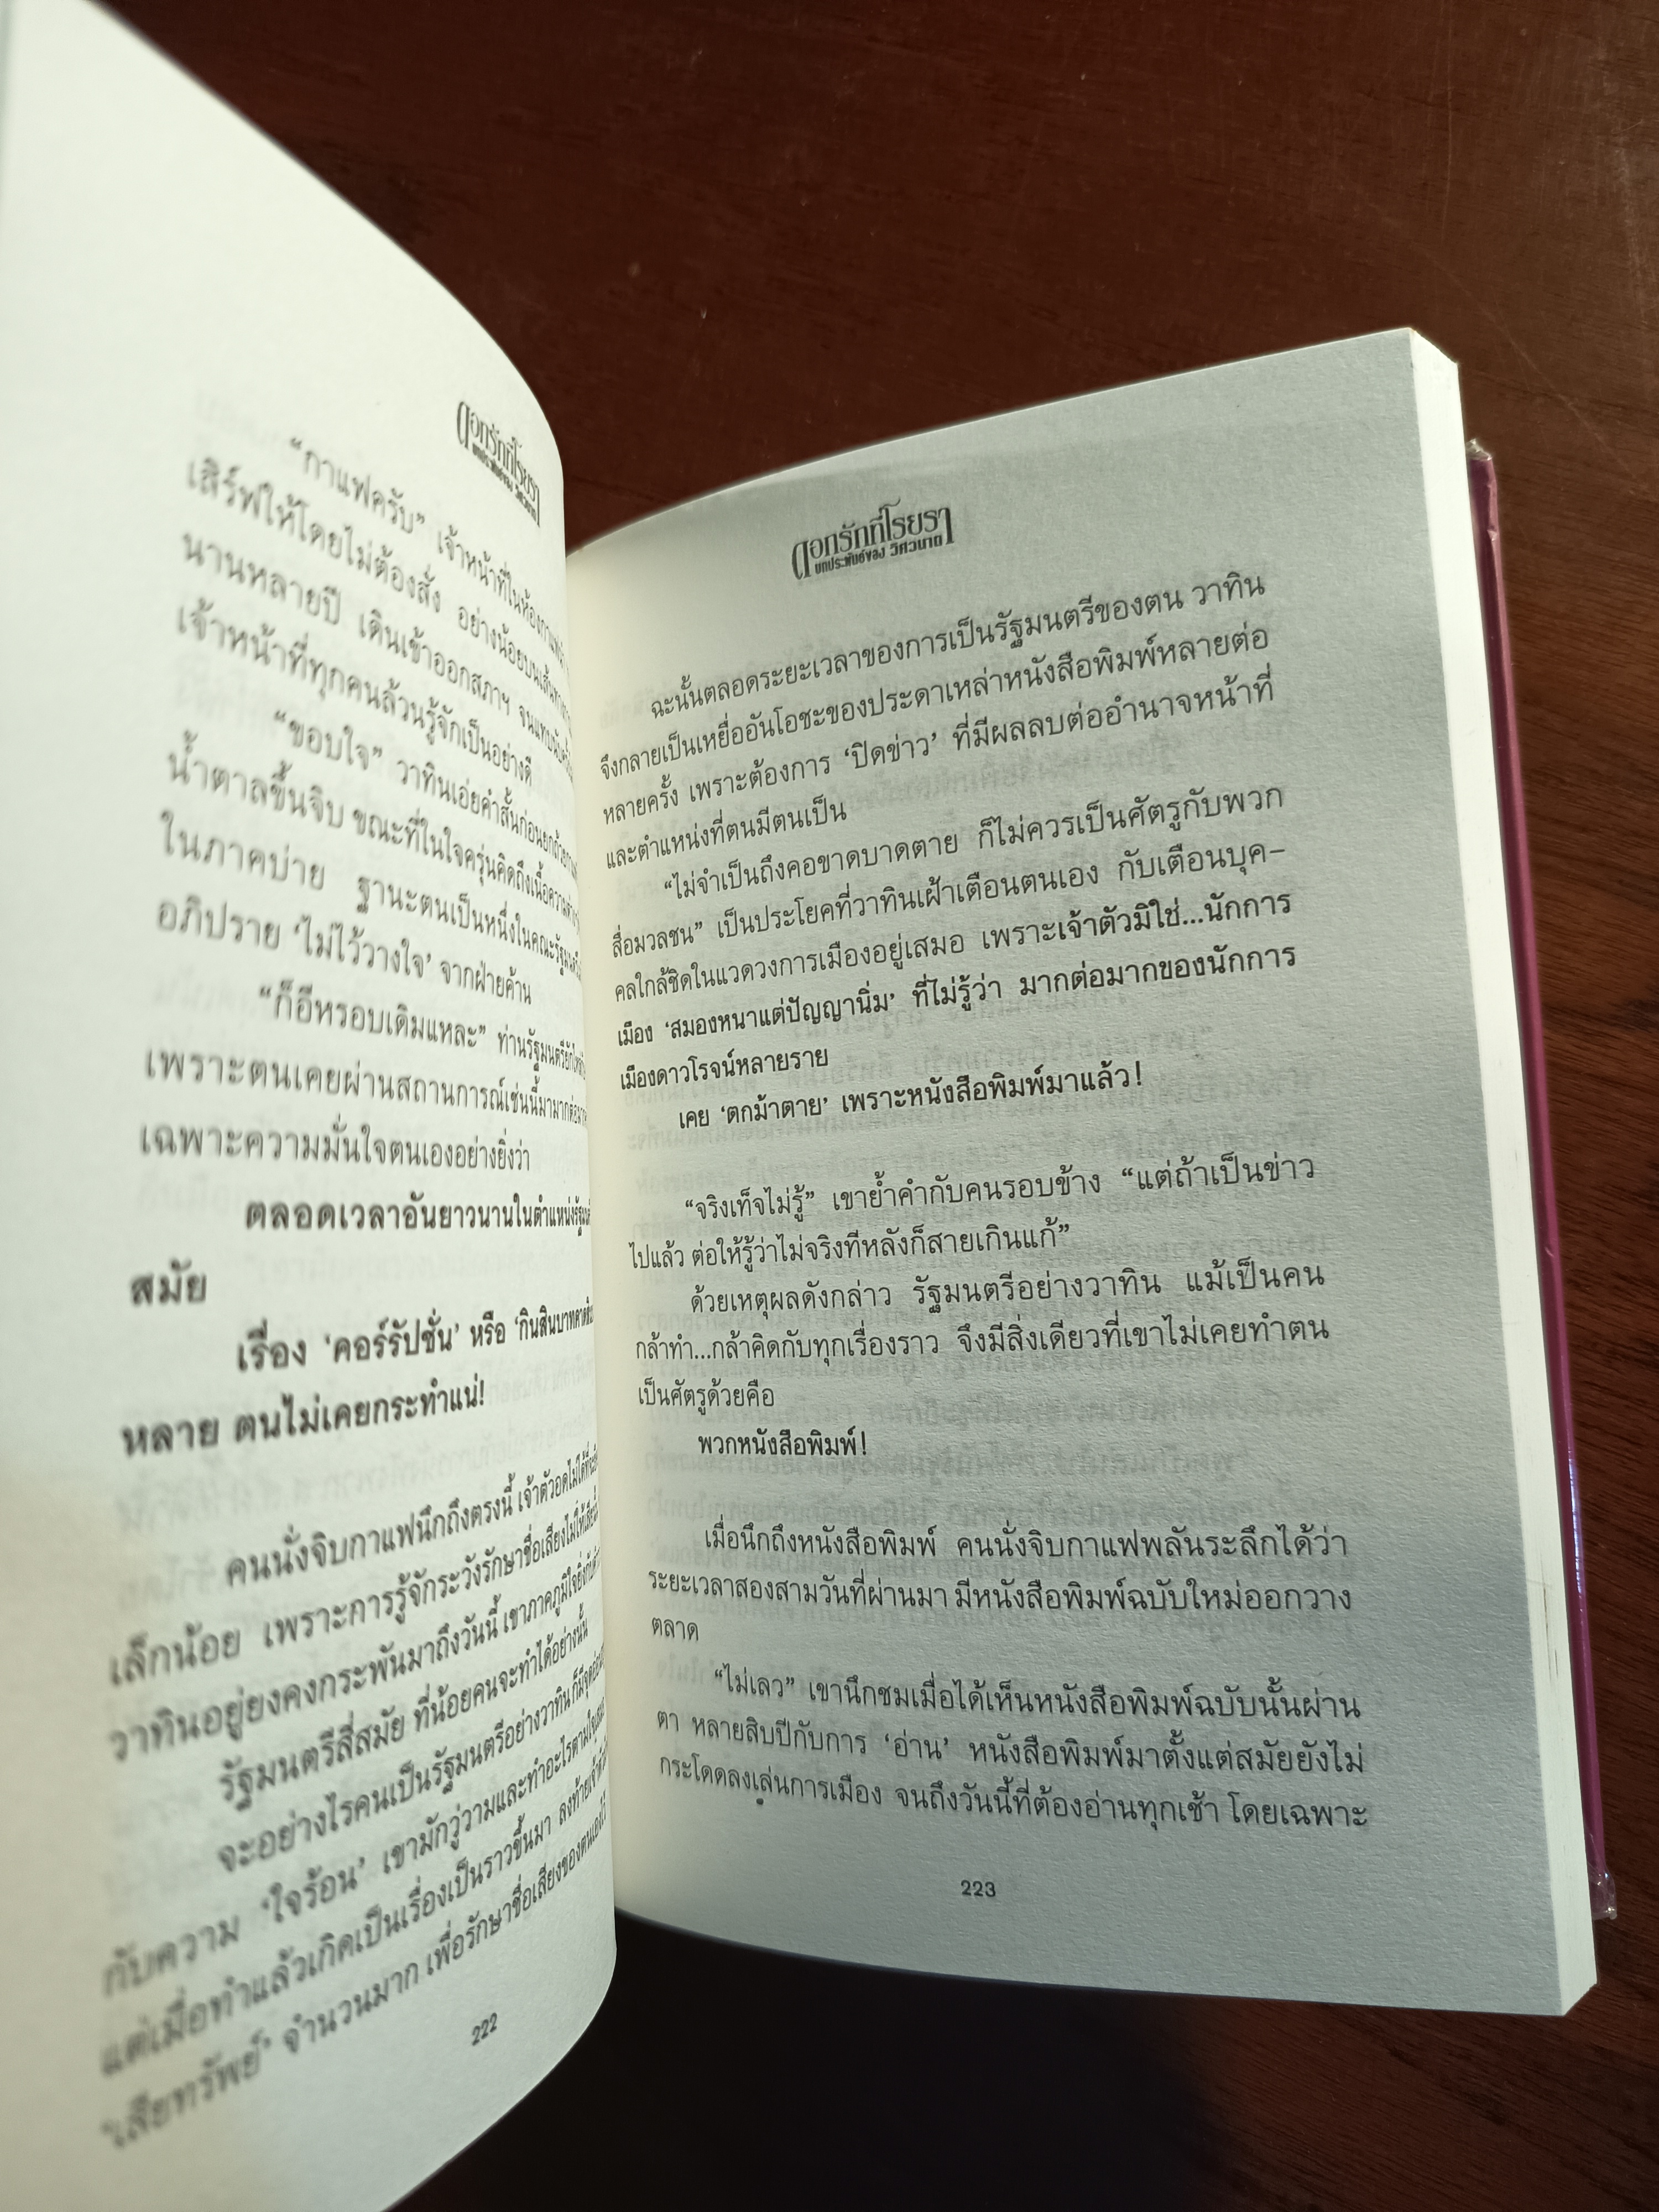 ดอกรักที่โรยรา
บทประพันธ์ของ วัศวนาถ
“กาแฟครับ” เจ้าหน้าที่ในห้องกาแฟ
เสิร์ฟให้โดยไม่ต้องสั่ง อย่างน้อยบนเส้นทาง
นานหลายปี เดินเข้าออกสภาฯ จนแทบนับครั้ง
เจ้าหน้าที่ทุกคนล้วนรู้จักเป็นอย่างดี
“ขอบใจ” วาทินเอ่ยคำสั้นก่อนยกถ้วย
น้ำตาลขึ้นจิบ ขณะที่ในใจครุ่นคิดถึงเนื้อความ
ในภาคบ่าย ฐานะตนเป็นหนึ่งในคณะรัฐมนตรี
อภิปราย ‘ไม่ไว้วางใจ’ จากฝ่ายค้าน
“ก็อีหรอบเดิมแหละ” ท่านรัฐมนตรียักไหล่
เพราะตนเคยผ่านสถานการณ์เช่นนี้มามากต่อมาก
เฉพาะความมั่นใจตนเองอย่างยิ่งว่า
ตลอดเวลาอันยาวนานในตำแหน่งรัฐมนตรี
สมัย
เรื่อง ‘คอร์รัปชั่น’ หรือ ‘กินสินบาทคาดสินบน
หลาย ตนไม่เคยกระทำแน่!
คนนั่งจิบกาแฟนึกถึงตรงนี้ เจ้าตัวอดไม่ได้ที่จะ
เล็กน้อย เพราะการรู้จักระวังรักษาชื่อเสียงไม่ให้เสีย
วาทินอยู่ยงคงกระพันมาถึงวันนี้ เขาภาคภูมิใจยิ่งกับ
รัฐมนตรีสี่สมัย ที่น้อยคนจะทำได้อย่างนั้น
จะอย่างไรคนเป็นรัฐมนตรีอย่างวาทิน ก็มีจุดอ่อน
กับความ ‘ใจร้อน’ เขามักวู่วามและทำอะไรตามใจ
แต่เมื่อทำแล้วเกิดเป็นเรื่องเป็นราวขึ้นมา ลงท้ายเจ้าตัว
‘เสียทรัพย์’ จำนวนมาก เพื่อรักษาชื่อเสียงของตนเองไว้
222
ดอกรักที่โรยรา
บทประพันธ์ของ วัศวนาถ
ฉะนั้นตลอดระยะเวลาของการเป็นรัฐมนตรีของตน วาทิน
จึงกลายเป็นเหยื่ออันโอชะของประดาเหล่าหนังสือพิมพ์หลายต่อ
หลายครั้ง เพราะต้องการ ‘ปิดข่าว’ ที่มีผลลบต่ออำนาจหน้าที่
และตำแหน่งที่ตนมีตนเป็น
“ไม่จำเป็นถึงคอขาดบาดตาย ก็ไม่ควรเป็นศัตรูกับพวก
สื่อมวลชน” เป็นประโยคที่วาทินเฝ้าเตือนตนเอง กับเตือนบุค–
คลใกล้ชิดในแวดวงการเมืองอยู่เสมอ เพราะเจ้าตัวมิใช่...นักการ
เมือง ‘สมองหนาแต่ปัญญานิ่ม’ ที่ไม่รู้ว่า มากต่อมากของนักการ
เมืองดาวโรจน์หลายราย
เคย ‘ตกม้าตาย’ เพราะหนังสือพิมพ์มาแล้ว!
“จริงเท็จไม่รู้” เขาย้ำคำกับคนรอบข้าง “แต่ถ้าเป็นข่าว
ไปแล้ว ต่อให้รู้ว่าไม่จริงทีหลังก็สายเกินแก้”
ด้วยเหตุผลดังกล่าว รัฐมนตรีอย่างวาทิน แม้เป็นคน
กล้าทำ...กล้าคิดกับทุกเรื่องราว จึงมีสิ่งเดียวที่เขาไม่เคยทำตน
เป็นศัตรูด้วยคือ
พวกหนังสือพิมพ์!
เมื่อนึกถึงหนังสือพิมพ์ คนนั่งจิบกาแฟพลันระลึกได้ว่า
ระยะเวลาสองสามวันที่ผ่านมา มีหนังสือพิมพ์ฉบับใหม่ออกวาง
ตลาด
“ไม่เลว” เขานึกชมเมื่อได้เห็นหนังสือพิมพ์ฉบับนั้นผ่าน
ตา หลายสิบปีกับการ ‘อ่าน’ หนังสือพิมพ์มาตั้งแต่สมัยยังไม่
กระโดดลงเล่นการเมือง จนถึงวันนี้ที่ต้องอ่านทุกเช้า โดยเฉพาะ
223